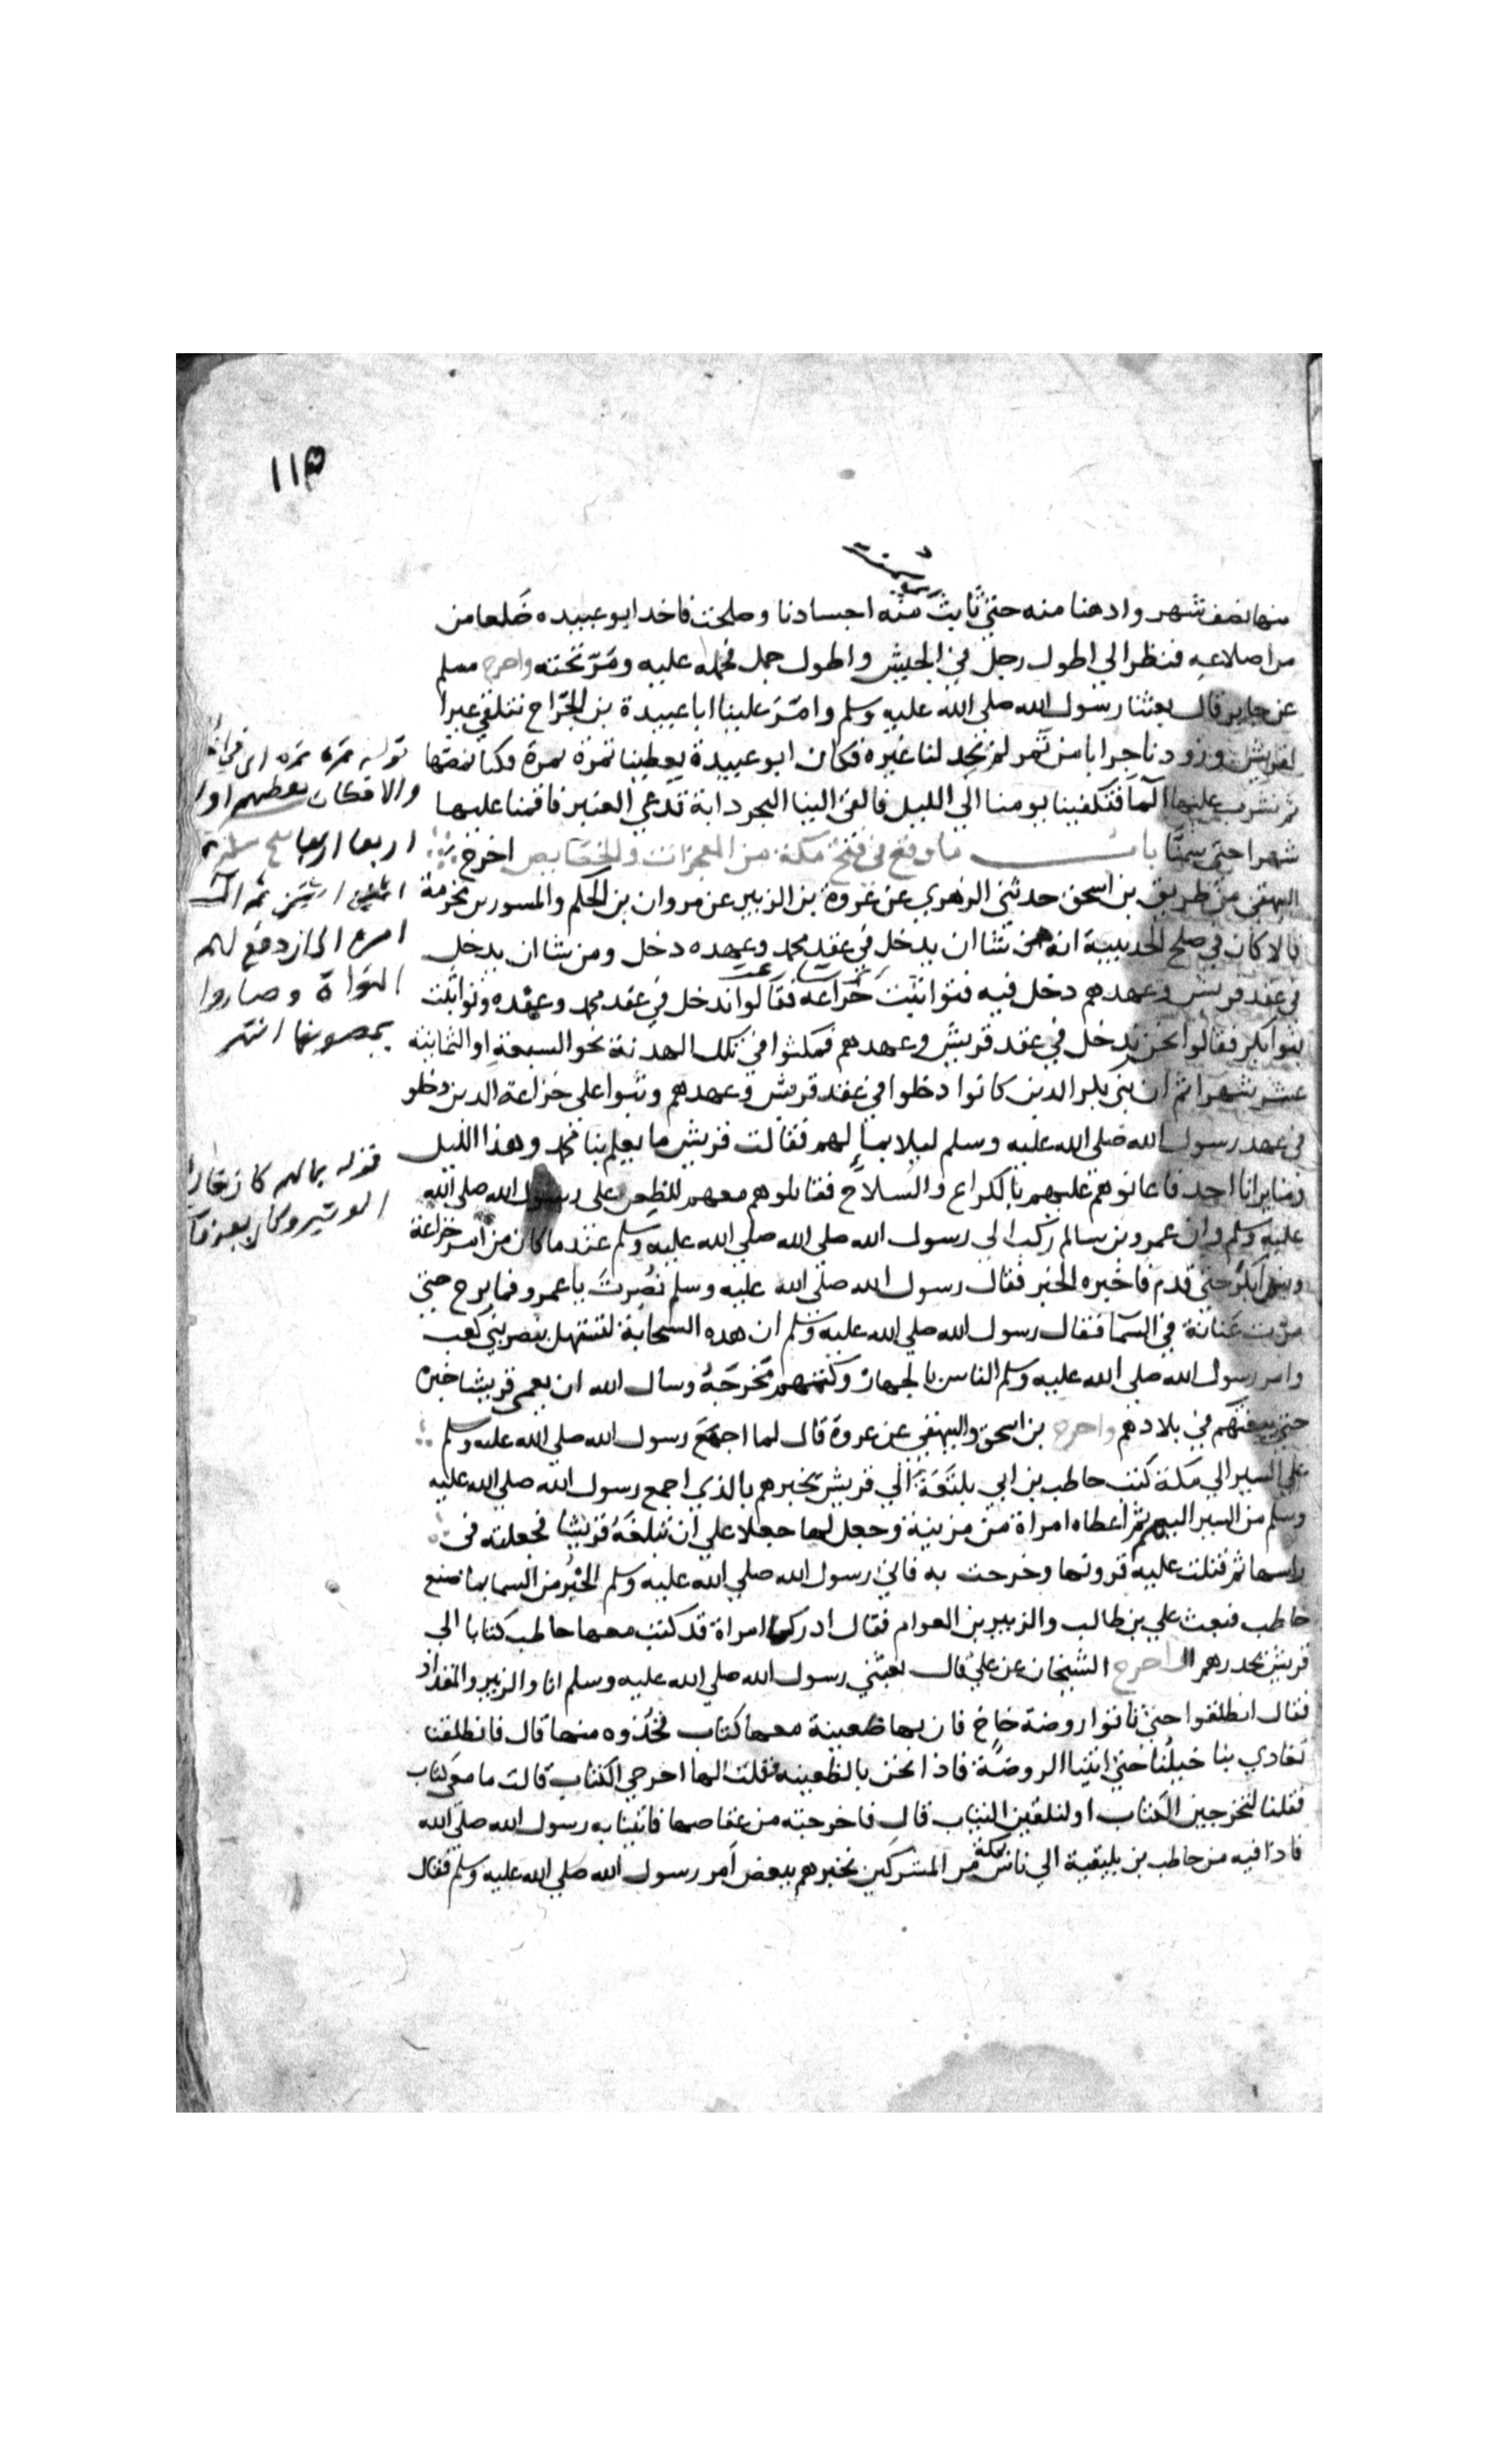 ١١٥
منها نصف شهر وادهنا منه حتى ثابت منه اجسادنا وصلحت فاخد ابو عبيده ضلعا من
من اضلاعه فنظر الى اطول رجل في الجيش واطول جمل فحمله عليه ومَرّ تحته واخرج مسلم
عن جابر قال بعثنا رسول الله صلى الله عليه وسلم وامّرَ علينا ابا عبيدة بن الجرّاح نتلقي عيرا
لقريش وزودنا جرابا من تمر لم نجد لنا غيره فكان ابو عبيدة يعطينا تمرة تمرة وكنا نمصّها
ثم نشرب عليها المآ فتكفينا يومنا الي الليل فالقى الينا البحر دابة تدعي العنبر فاقمنا عليها
شهرا حتى سمنّا باب ما وقع في فتح مكة من المعجزات والخصايص اخرج
البيهقي من طريق بن اسحق حدثني الزهري عن عروة بن الزبير عن مروان بن الحكم والمسور بن مخرمة
قالا كان في صلح الحديبية انه من شا ان يدخل في عقد محمد وعهده دخل ومن شا ان يدخل
في عقد قريش وعهدهم دخل فيه فتواثبت خزاعه فقالوا ندخل في عقد محمد وعهده وتواثبت
بنوا بكر فقالوا نحن ندخل في عقد قريش وعهدهم فمكثوا في تلك الهدنة نحو السبعة او الثمانية
عشر شهرا ثم ان بني بكر الدين كانوا دخلوا في عقد قريش وعهدهم وثبوا على خزاعة الدين دخلو
في عهد رسول الله صلى الله عليه وسلم ليلا بماٍ لهم فقالت قريش ما يعلم بنا محمد وهذا الليل
وما يرانا احد فاعانوهم عليهم بالكراع والسلاح فقاتلوهم معهم للظعن على رسول الله صلى الله
عليه وسلم وان عمرو بن سالم ركب الى رسول الله صلى الله صلي الله عليه وسلم عندما كان من امر خزاعة
وبنوا بكر حتى قدم فاخبره الخبر فقال رسول الله صلى الله عليه وسلم نُصِرتَ يا عمرو فما برح حتى
مرّت عَنانة في السمآ فقال رسول الله صلى الله عليه وسلم ان هده السحابة لتستهل بنصر بني كعب
وامر رسول الله صلى الله عليه وسلم الناس بالجهاز وكتمهم مَخرجَهُ وسال الله ان يعمي قريشا خبره
حتى يبغتهم في بلادهم واخرج بن اسحق والبيهقي عن عروة قال لما اجمَعَ رسول الله صلي الله عليه وسلم
على السير الي مكة كتب حاطب بن ابي بلتعَة الي قريش يخبرهم بالذي اجمع رسول الله صلى الله عليه
وسلم من السير اليهم ثم اعطاه امراة من مزينة وجعل لها جعلا علي ان تبلغهُ قريشا فجعلته في
راسها ثم فتلت عليه قرونها وخرجت به فاتى رسول الله صلي الله عليه وسلم الخبرُ من السما بما صنع
حاطب فبعث علي بن طالب والزبير بن العوام فقال ادركا امراة قد كتب معها حاطب كتابا الى
قريش يحدرهم اخرج الشيخان عن علي قال بعثني رسول الله صلي الله عليه وسلم انا والزبير والمقداد
فقال انطلقوا حتى تاتوا روضة خاخ فان بها ظعينة معها كتاب فخُذوه منها قال فانطلقنا
تعادي بنا خيلُنا حتى اتينا الروضة فاذا نحن بالظعينه فقلت لها اخرجي الكتاب قالت ما معى كتاب
فقلنا لتخرجين الكتاب او لنلقين الثياب قال فاخرجته من عقاصها فاتينا به رسول الله صلى الله
فادا فيه من حاطب بن بليقية الي ناس من المشركين بمكة يخبرهم ببعض اَمر رسول الله صلي الله عليه وسلم فقال
قوله تمرة تمره اى
والا فكان يعطيهم اولا
اربعا اربعا
اثنين اثنين ثم
امره الى ان دفع لهم
النواة وصاروا
يمصونها انتهى
قوله بما لهم كان يقال
الوتير